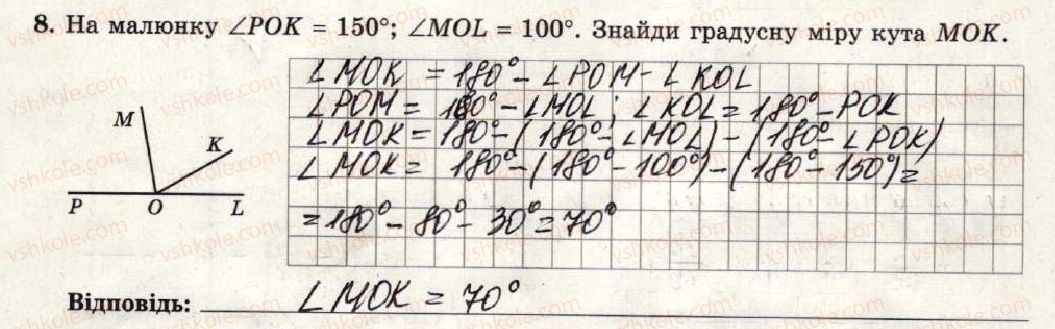 8. На малюнку ∠POK = 150°; ∠MOL = 100°. Знайди градусну міру кута MOK.
∠MOK = 180° - ∠POM - ∠KOL
∠POM = 180° - ∠MOL; ∠KOL = 180° - POK
∠MOK = 180° - (180° - ∠MOL) - (180° - ∠POK)
∠MOK = 180° - (180° - 100°) - (180° - 150°) =
= 180° - 80° - 30° = 70°
M
K
P O L
Відповідь: ∠MOK = 70°
vshkole.com